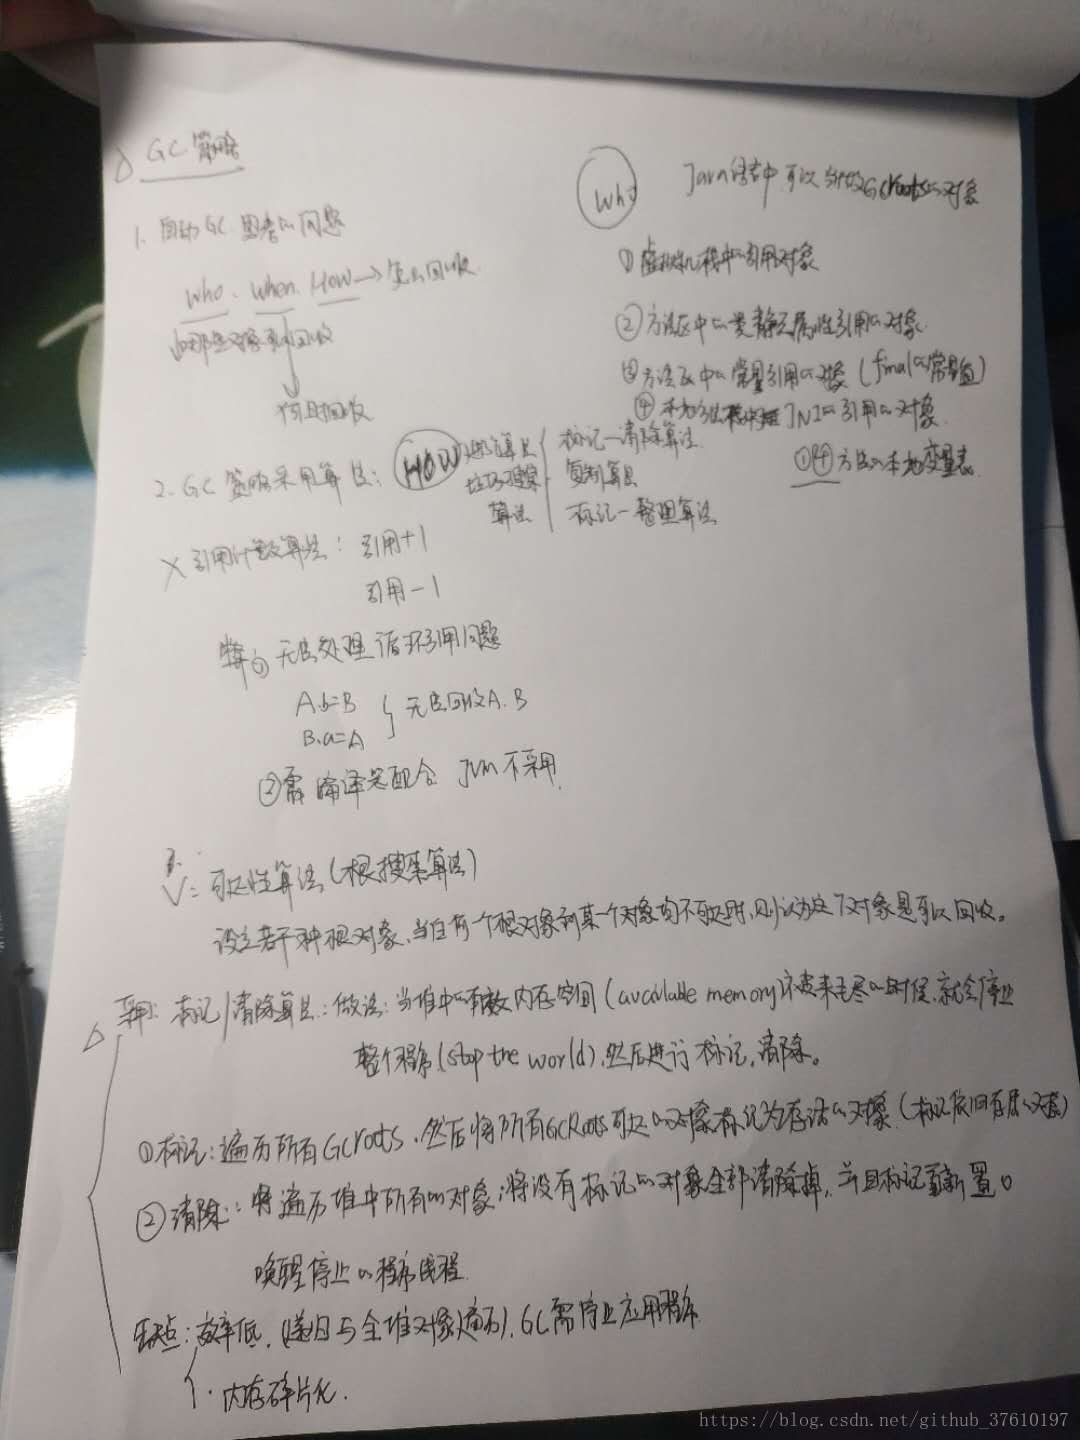 GC 策略
1. 自动GC 思考的问题
who. when. How → 怎么回收
哪些对象 回收
何时回收
Who
Java语言中可以当做GCroots的对象
①虚拟机栈中的引用对象
②方法区中的类静态属性引用的对象.
③方法区中的常量引用的对象 (final的常量值)
④本地方法栈中 JNI的引用的对象.
①④方法的本地变量表.
2. GC 策略采用算法:
HOW
垃圾搜集
算法
标记—清除算法.
复制算法
标记—整理算法
X 引用计数算法: 引用+1
引用-1
弊: ① 无法处理循环引用问题
A.b=B
B.a=A
} 无法回收A.B
②需编译器配合 JVM不采用.
√: 可达性算法(根搜索算法)
设立若干种根对象,当任何一个根对象到某一个对象均不可达时,则认为这个对象是可以回收。
标记/清除算法: 做法: 当堆中的有效内存空间 (available memory) 被耗尽的时候,就会停止
整个程序(stop the world),然后进行标记,清除。
①标记: 遍历所有GCroots,然后将所有GCRoots可达的对象标记为存活的对象. (标记依旧存活的对象)
②清除: 将遍历堆中所有的对象,将没有标记的对象全部清除掉,并且标记重新置0
唤醒停止的程序线程.
缺点: 效率低, (递归与全堆对象遍历), GC需停止应用程序
内存碎片化.
https://blog.csdn.net/github_37610197